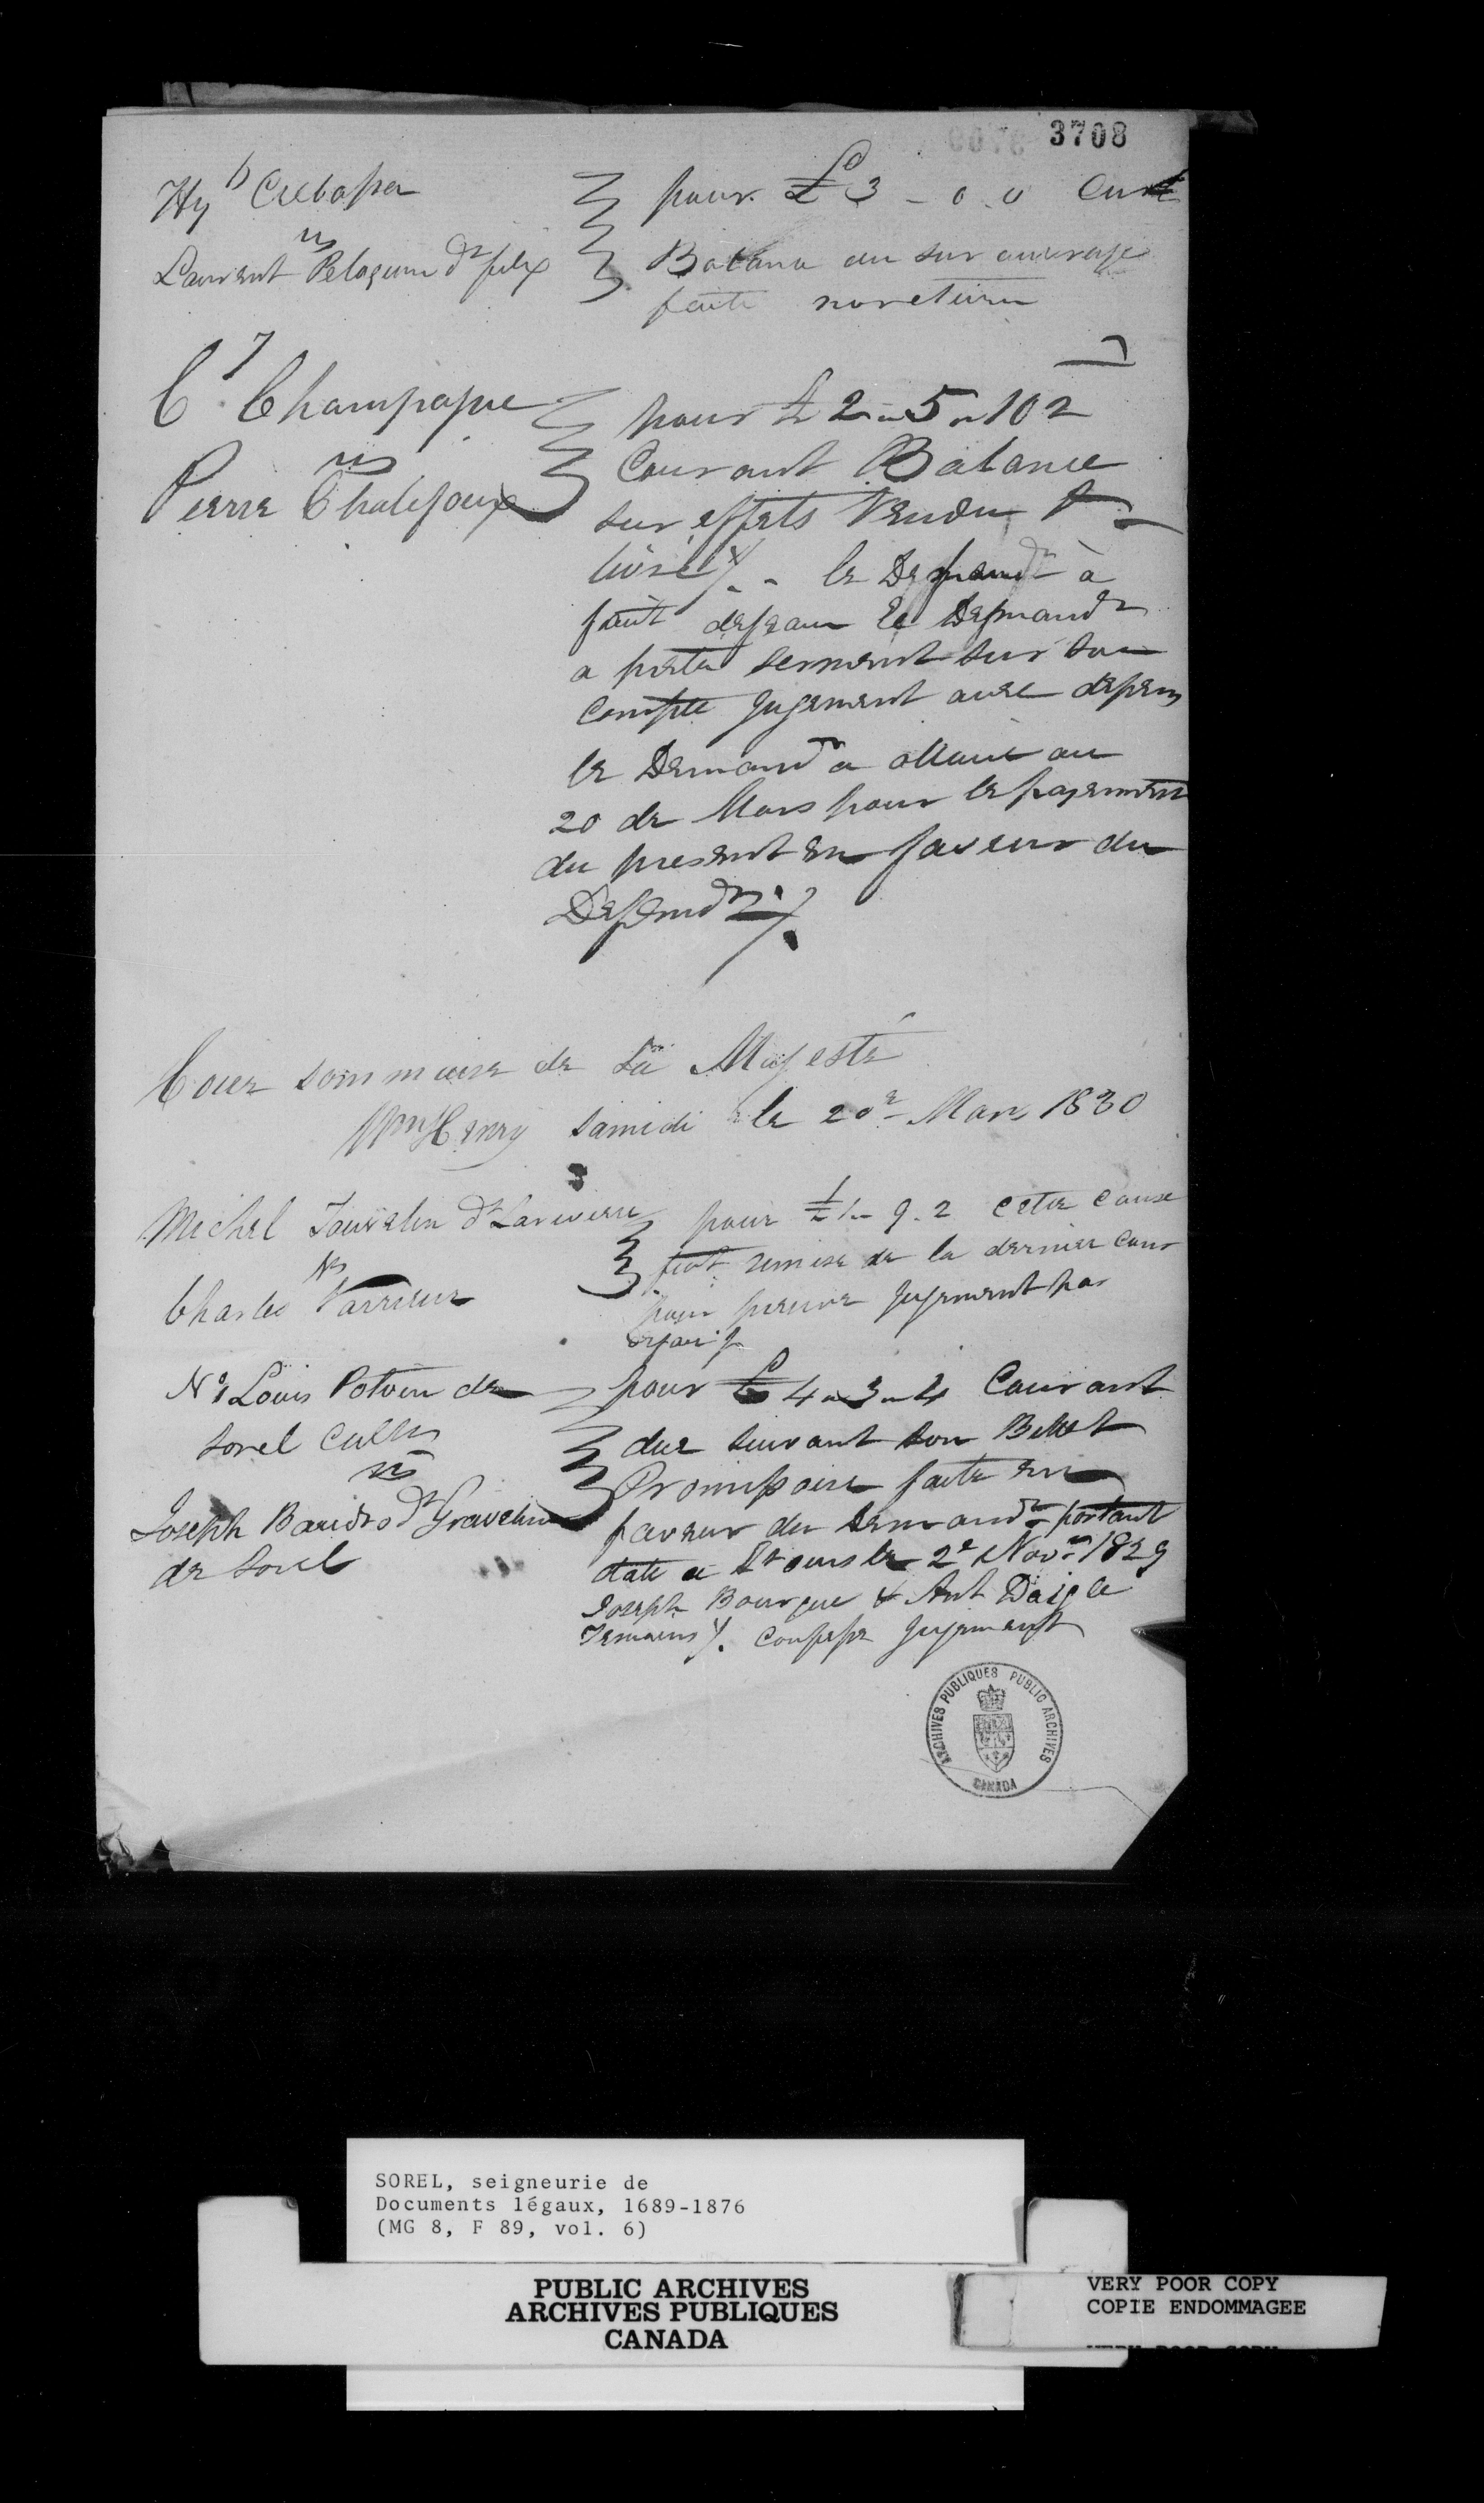 3708
Hy Crebassa
vs
Laurent Peloquin dt felix
pour £3 - 0 . 0 Curt
Balance du sur ouvrage
faite no return
7
C. Champagne
vs
Pierre Chalifoux
pour £ 2 - 5 - 10 2
Courant Balance
sur effets Vendu &
livré - le Defendr à
fait defeaux le Demandr
a preter serment sur son
Compte Jugement avec depens
le Demandr a alloué au
20 de Mars pour le payement
du present en faveur du
Defendr
Cour sommaire de Sa Majesté
Wm Henry samedi le 20e Mars 1830
Michel dt Lariviere
vs
Charles
pour £ 1 - 9 . 2 Cette Cause
fut remise de la dernier Cour
pour preuve Jugement par
Nº 1 Louis Potvin de
Sorel
vs
Joseph dt Gravelin
de Sorel
pour £ 4 - 3 - 4 Courant
due suivant son Billet
Promissoire faite en
faveur du Demandr portant
date a St ours le 2e Novre 1829
Joseph Bourque & Ant Daigle
Temoins Confesse Jugement
ARCHIVES PUBLIQUES PUBLIC ARCHIVES
CANADA
SOREL, seigneurie de
Documents légaux, 1689-1876
(MG 8, F 89, vol. 6)
PUBLIC ARCHIVES
ARCHIVES PUBLIQUES
CANADA
VERY POOR COPY
COPIE ENDOMMAGEE
VERY POOR COPY